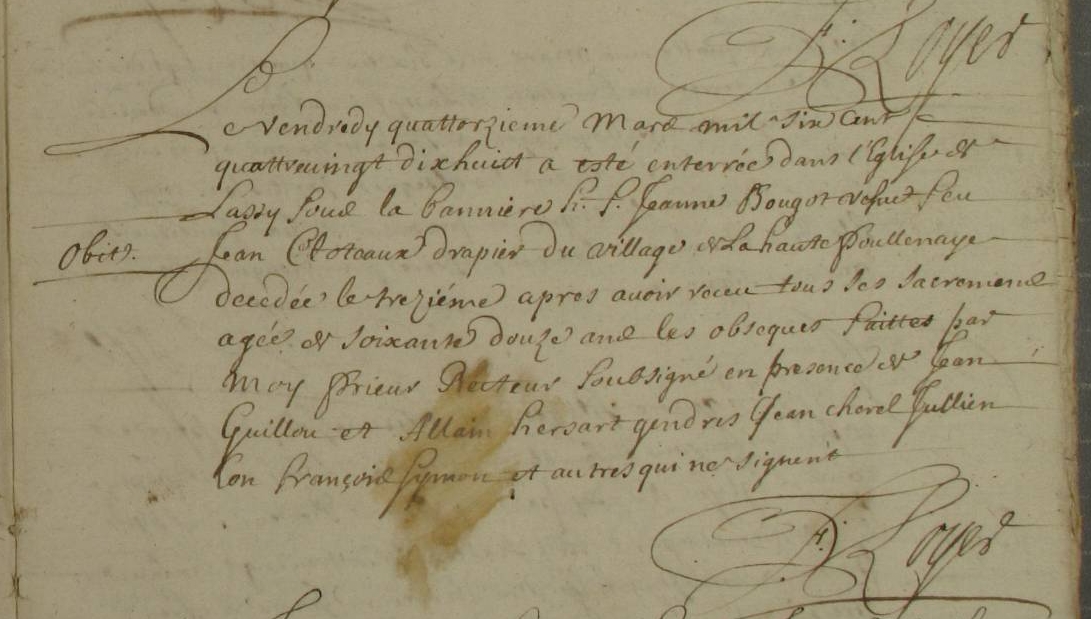 F. Royer
Le vendredy quattorzieme Mars mil six cent
quattrevingt dixhuict a esté enterrée dans l'Eglise de
Lassy sous la banniere h. f. Jeanne Bougot vefue feu
Obit. Jean Costeaux drapier du village de La haute ffoullenaye
decedée le treziéme apres avoir receu tous ses sacremens
agée de soixante douze ans les obseques faittes par
Moy Prieur Recteur soubsigné en presence de Jean
Guillou et Allain hersart gendres Jean cherel Jullien
lon françois Symon et autres qui ne signent
F. Royer